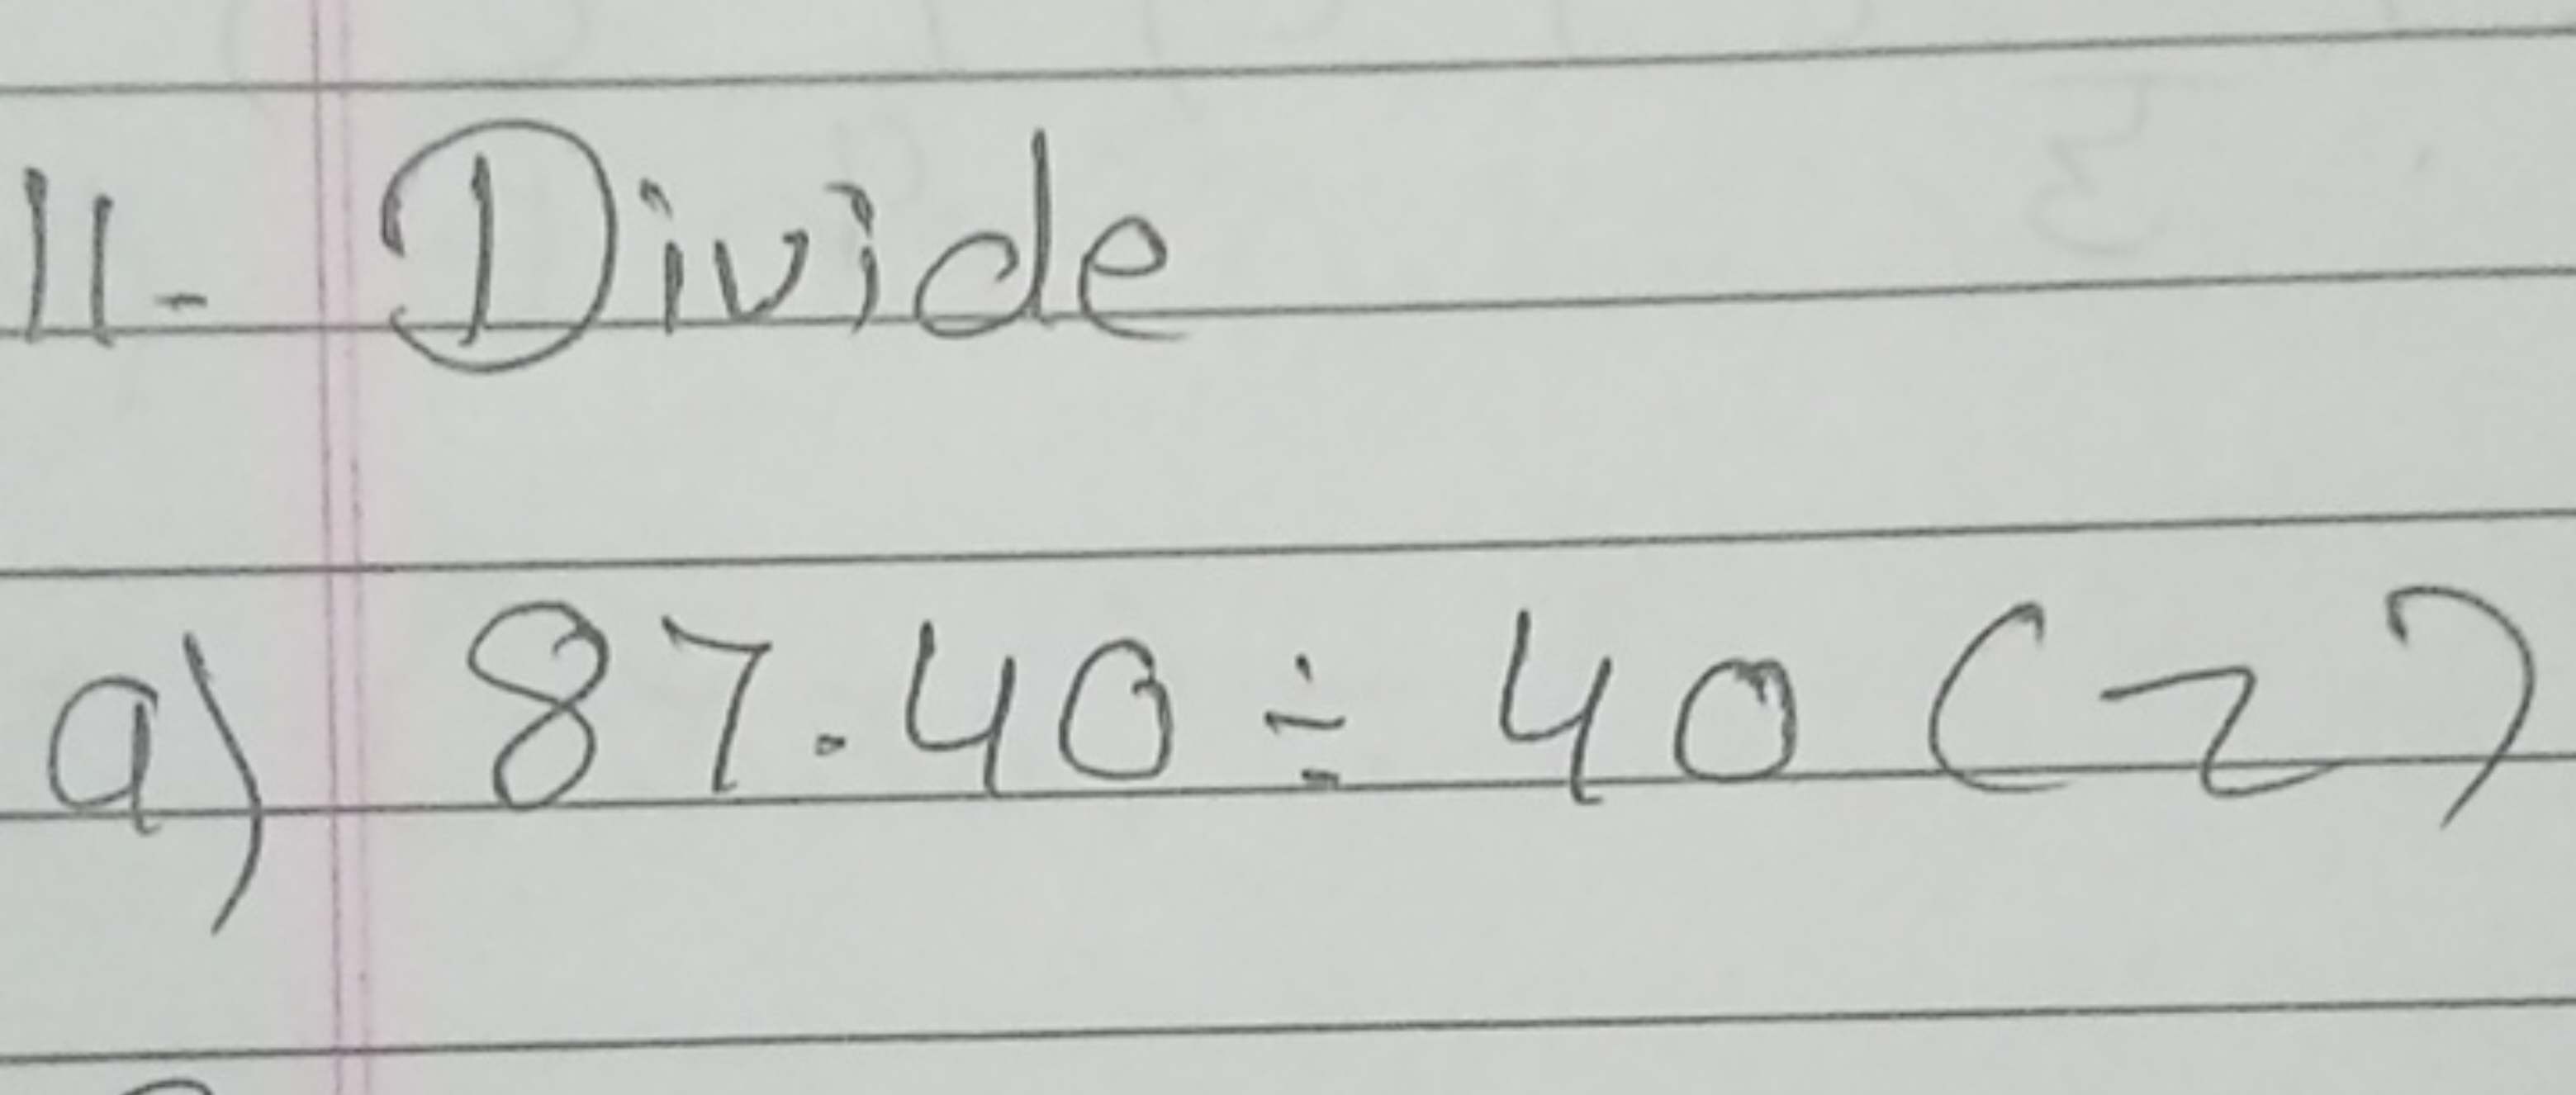 11- Divide
a) 87.40 ÷ 40 (2)